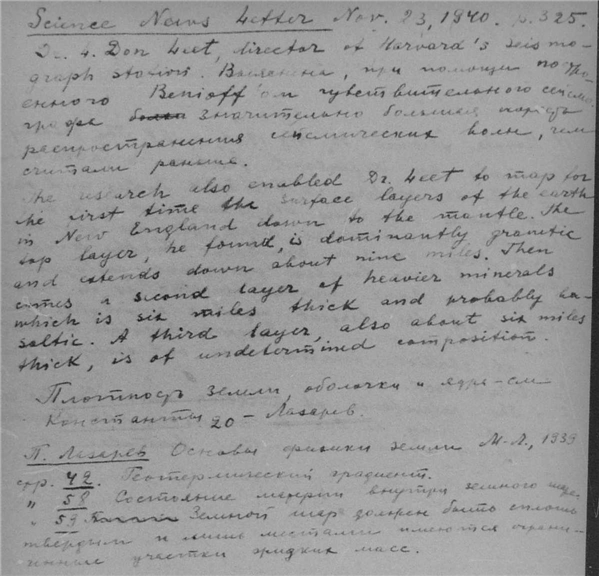 Science News Letter Nov. 23, 1940. p. 325.
Dr. L. Don Leet, director of Harvard's seismo-
graph station. Выяснена, при помощи постро-
енного Benioff'ом чувствительного сейсмо-
графа значительно большая скорость
распространения сейсмических волн, чем
считали раньше.
The research also enabled Dr. Leet to map for
the first time the surface layers of the earth
in New England down to the mantle. The
top layer, he found, is dominantly granitic
and extends down about nine miles. Then
comes a second layer of heavier minerals
which is six miles thick and probably ba-
saltic. A third layer, also about six miles
thick, is of undetermined composition.
Плотность Земли, оболочки и ядра – см
Константы 20 – Лазарев.
П. Лазарев Основы физики земли М.-Л., 1939
стр. 42. Геотермический градиент.
" 58 Состояние материи внутри земного шара
" 59 Земной шар должен быть сплошь
твердым и лишь местами имеются ограни-
ченные участки жидких масс.